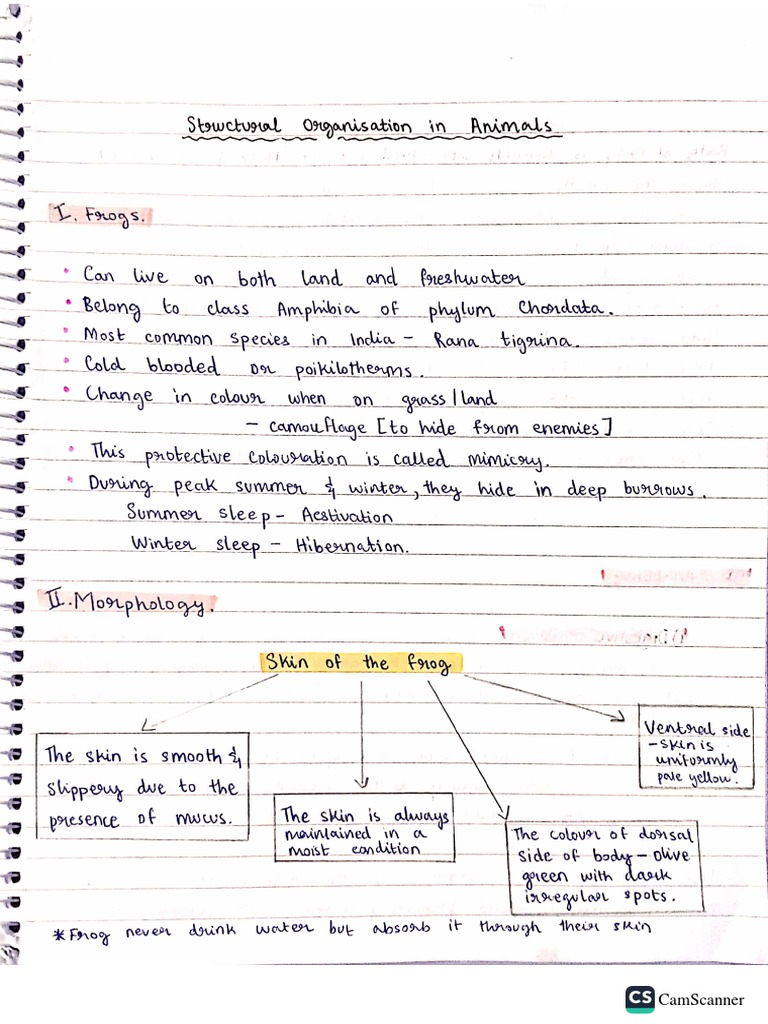 Structural Organisation in Animals
I. Frogs.
• Can live on both land and freshwater
• Belong to class Amphibia of phylum Chordata.
• Most common species in India - Rana tigrina.
• Cold blooded or poikilotherms.
• Change in colour when on grass/land
- camouflage [to hide from enemies]
• This protective colouration is called mimicry.
• During peak summer & winter, they hide in deep burrows.
Summer sleep - Aestivation
Winter sleep - Hibernation.
II. Morphology.
Skin of the frog
The skin is smooth &
slippery due to the
presence of mucus.
The skin is always
maintained in a
moist condition
The colour of dorsal
side of body - olive
green with dark
irregular spots.
Ventral side
- skin is
uniformly
pale yellow.
* Frog never drink water but absorb it through their skin
CS CamScanner